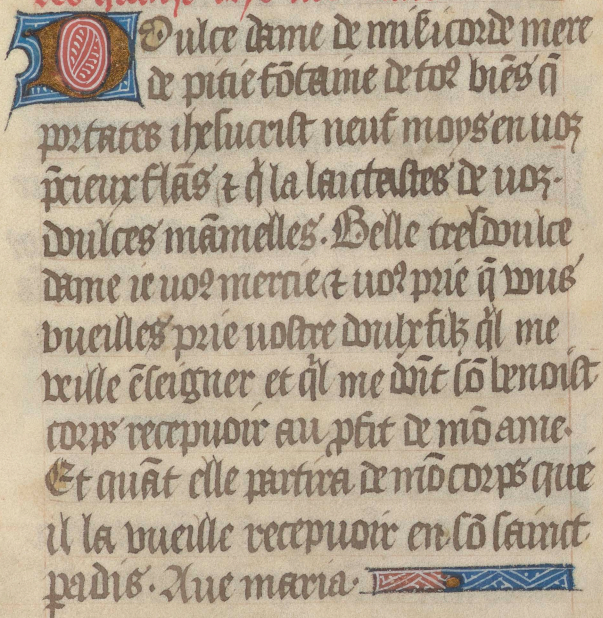 Dulce dame de mis̃icorde mere
de pitie fõtaine de toꝰ biẽs q̃
portates ihesucrist neuf moys en uoz
p̃cieux flãs ⁊ q̃ la laictastes de uoz.
doulces mãmelles. Belle tresdoulce
dame ie uoꝰ mercie ⁊ uoꝰ prie q̃ uous
vueilles prie uostre doulx filz q̃l me
veille ẽseigner et q̃l me doit̃ sõ benoist
corps recepuoir au ꝓfit de mõ ame.
Et quãt elle partira de mõ corps que
il la vueille recepuoir en sõ sainct
padis. Aue maria.